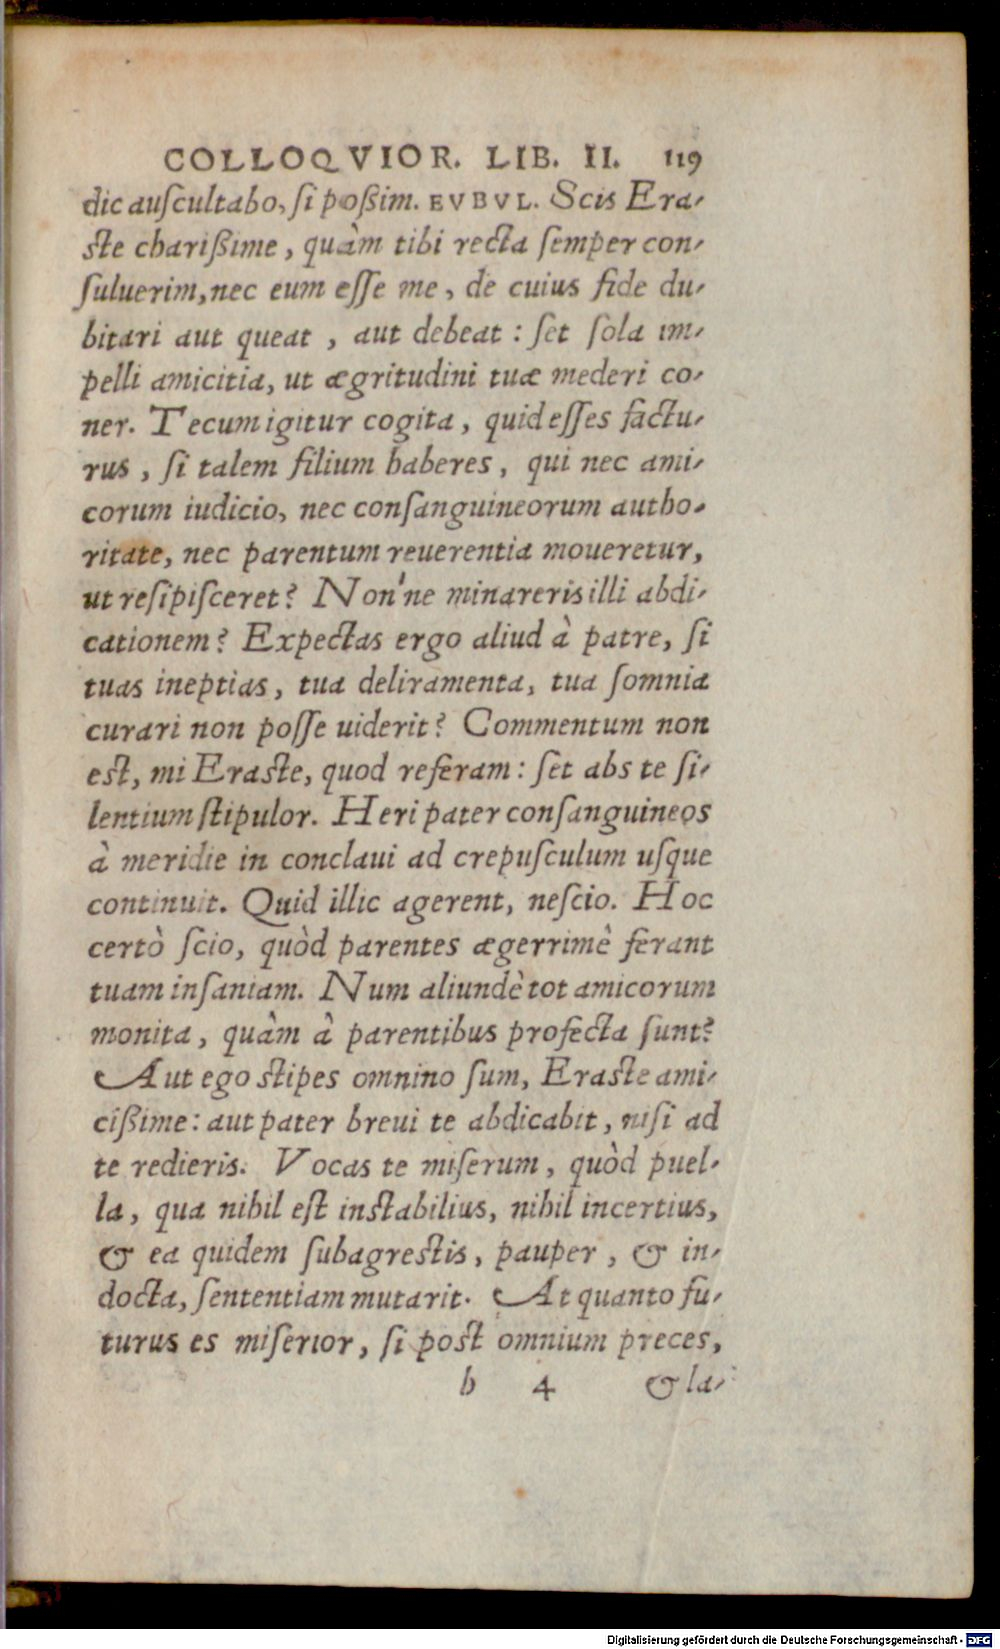 COLLOQVIOR. LIB. II. 119
dic auſcultabo, ſi poßim. EVBVL. Scis Era-
ſte charißime, quàm tibi recta ſemper con-
ſuluerim, nec eum eſſe me, de cuius fide du-
bitari aut queat, aut debeat: ſet ſola im-
pelli amicitia, ut ægritudini tuæ mederi co-
ner. Tecum igitur cogita, quid eſſes factu-
rus, ſi talem filium haberes, qui nec ami-
corum iudicio, nec conſanguineorum autho-
ritate, nec parentum reuerentia moueretur,
ut reſipiſceret? Non'ne minareris illi abdi-
cationem? Expectas ergo aliud à patre, ſi
tuas ineptias, tua deliramenta, tua ſomnia
curari non poſſe uiderit? Commentum non
est, mi Eraste, quod referam: ſet abs te ſi-
lentium ſtipulor. Heri pater conſanguineos
à meridie in conclaui ad crepuſculum uſque
continuit. Quid illic agerent, neſcio. Hoc
certò ſcio, quòd parentes ægerrimè ferant
tuam inſaniam. Num aliundè tot amicorum
monita, quàm à parentibus profecta ſunt?
Aut ego stipes omnino ſum, Eraste ami-
cißime: aut pater breui te abdicabit, niſi ad
te redieris. Vocas te miſerum, quòd puel-
la, qua nihil eſt instabilius, nihil incertius,
& ea quidem ſubagrestis, pauper, & in-
docta, ſententiam mutarit. At quanto fu-
turus es miſerior, ſi post omnium preces,
b 4 & la-
Digitalisierung gefördert durch die Deutsche Forschungsgemeinschaft - DFG